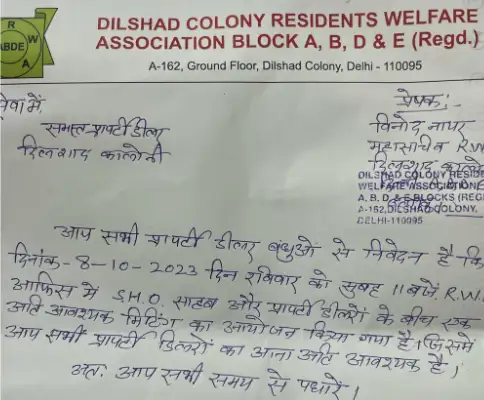 R
W
ABDE
A
DILSHAD COLONY RESIDENTS WELFARE
ASSOCIATION BLOCK A, B, D & E (Regd.)
A-162, Ground Floor, Dilshad Colony, Delhi - 110095
सेवा में,
समस्त प्रापर्टी डीलर
दिलशाद कालोनी
प्रेषक:-
विनोद नायर
महासचिव R.W
दिलशाद कालोनी
DILSHAD COLONY RESIDE
WELFARE ASSOCIATION
A, B, D & E BLOCKS (REG
A-162, DILSHAD COLONY,
DELHI-110095
आप सभी प्रापर्टी डीलर बंधुओ से निवेदन है कि
दिनांक-8-10-2023 दिन रविवार को सुबह 11 बजे R.W.
आफिस में S.H.O. साहब और प्रापर्टी डीलरों के बीच एक
अति आवश्यक मिटिंग का आयोजन किया गया है। जिसमें
आप सभी प्रापर्टी डिलरों का आना अति आवश्यक है।
अत: आप सभी समय से पधारे।